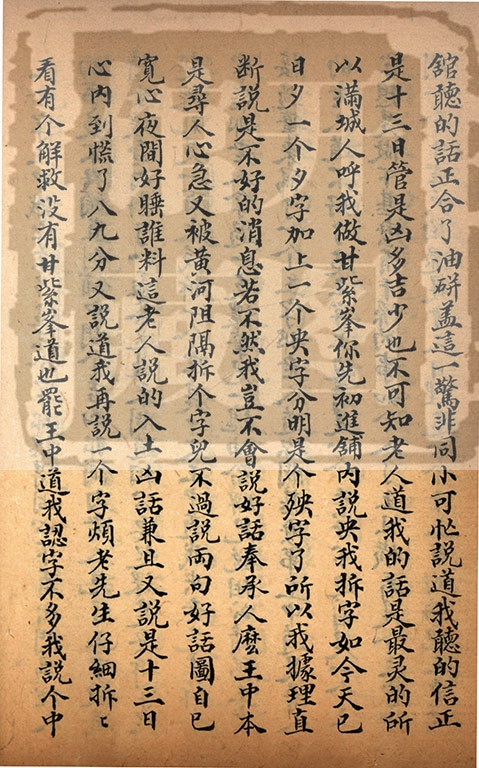 舘聽的話正合了油硑盖這一驚非同小可忙說道我聽的信正
是十三日管是凶多吉少也不可知老人道我的話是最灵的所
以滿城人呼我做甘紫峯你先初進舖内說央我拆字如今天已
日夕一个夕字加上一个央字分明是个殃字了所以我據理直
断說是不好的消息若不然我豈不會說好話奉承人麽王中本
是尋人心急又被黄河阻隔拆个字兒不過說両句好話圖自已
寛心夜間好睡誰料這老人說的入土凶話兼且又說是十三日
心内到慌了八九分又說道我再說一个字煩老先生仔細拆〻
看有个解救没有甘紫峯道也罷王中道我認字不多我說个中